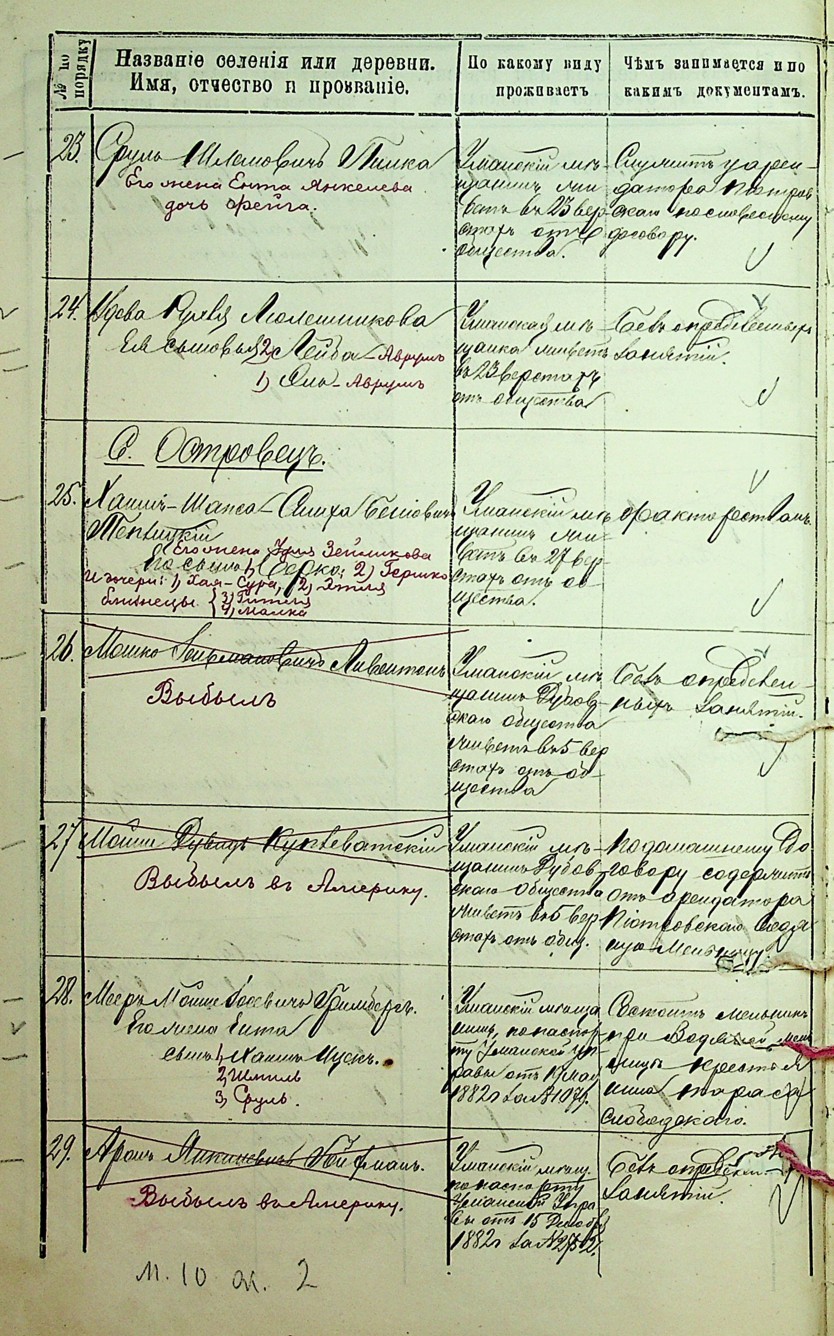 № по порядку
Названіе селенія или деревни.
Имя, отчество и прозваніе.
По какому виду
проживаетъ
Чѣмъ занимается и по
какимъ документамъ.
23.
Сруль Шлемовичъ
Его жена Ента Янкелева
дочь Фрейга.
Уманскій мѣ-
щанинъ жи-
ветъ въ 23 вер-
стахъ отъ
общества.
Служитъ у арен-
датора Піотров-
скаго по словесному
договору.
24.
Вдова
Ея сыновья 2) Лейба-Аврумъ
1) Аврумъ
Уманская мѣ-
щанка живетъ
въ 23 верстахъ
отъ общества
Безъ
занятій.
С. Островецъ.
25.
Хаимъ-Шапса
Его жена Зейликова
сыны 1) Берко; 2) Гершко
И дочери: 1) Хая-Сура, 2) Этля
близнецы { 3)
4) Малка
Уманскій мѣ-
щанинъ жи-
ветъ въ 27 вер-
стахъ отъ об-
щества.
Факторствомъ
26.
Мошко
Выбылъ
Уманскій мѣ-
щанинъ Дубов-
скаго общества
живетъ въ 5 вер
стахъ отъ об-
щества
Безъ опредѣлен-
ныхъ занятій.
27
Мойше Дувидъ Купіеватскій
Выбылъ въ Америку.
Уманскій мѣ-
щанинъ Дубов-
скаго общества
живетъ въ 5 вер
стахъ отъ общ.
По домашнему до
говору содержитъ
отъ арендатора
Піотровскаго водя
ную мельницу.
28.
Мееръ Мойше Гримбергъ.
Его жена Ента
сынъ 1) Хаимъ Ицекъ.
2) Шмиль
3) Сруль.
Уманскій мѣща
нинъ, по паспор-
ту Уманской Уп-
равы отъ
1882 г за №
Состоитъ мельник
при водяной мель
ницы крестья
нина Тараса
Слободскаго.
29.
Аронъ Гойфманъ.
Выбылъ въ Америку.
Уманскій мѣщ.
по паспорту
Уманской Упра
вы отъ 15 Декабр
1882 г за №
Безъ опредѣлен-
занятій.
м. 10 ж. 2